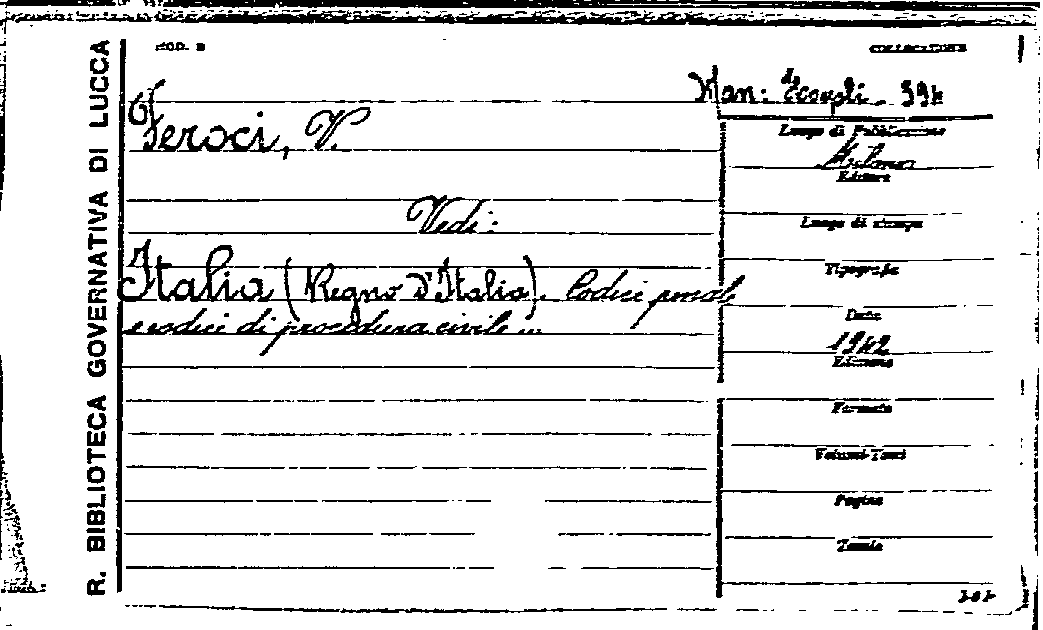 R. BIBLIOTECA GOVERNATIVA DI LUCCA
MOD. B
COLLOCAZIONE
Man: 994
Feroci, V.
Vedi:
Italia (Regno D'Italia). Codici penale
e codici di procedura civile ...
Luogo di Pubblicazione
Milano
Editore
Luogo di stampa
Tipografia
Data
1942
Edizione
Formato
Volumi-Tomi
Pagine
Tavole